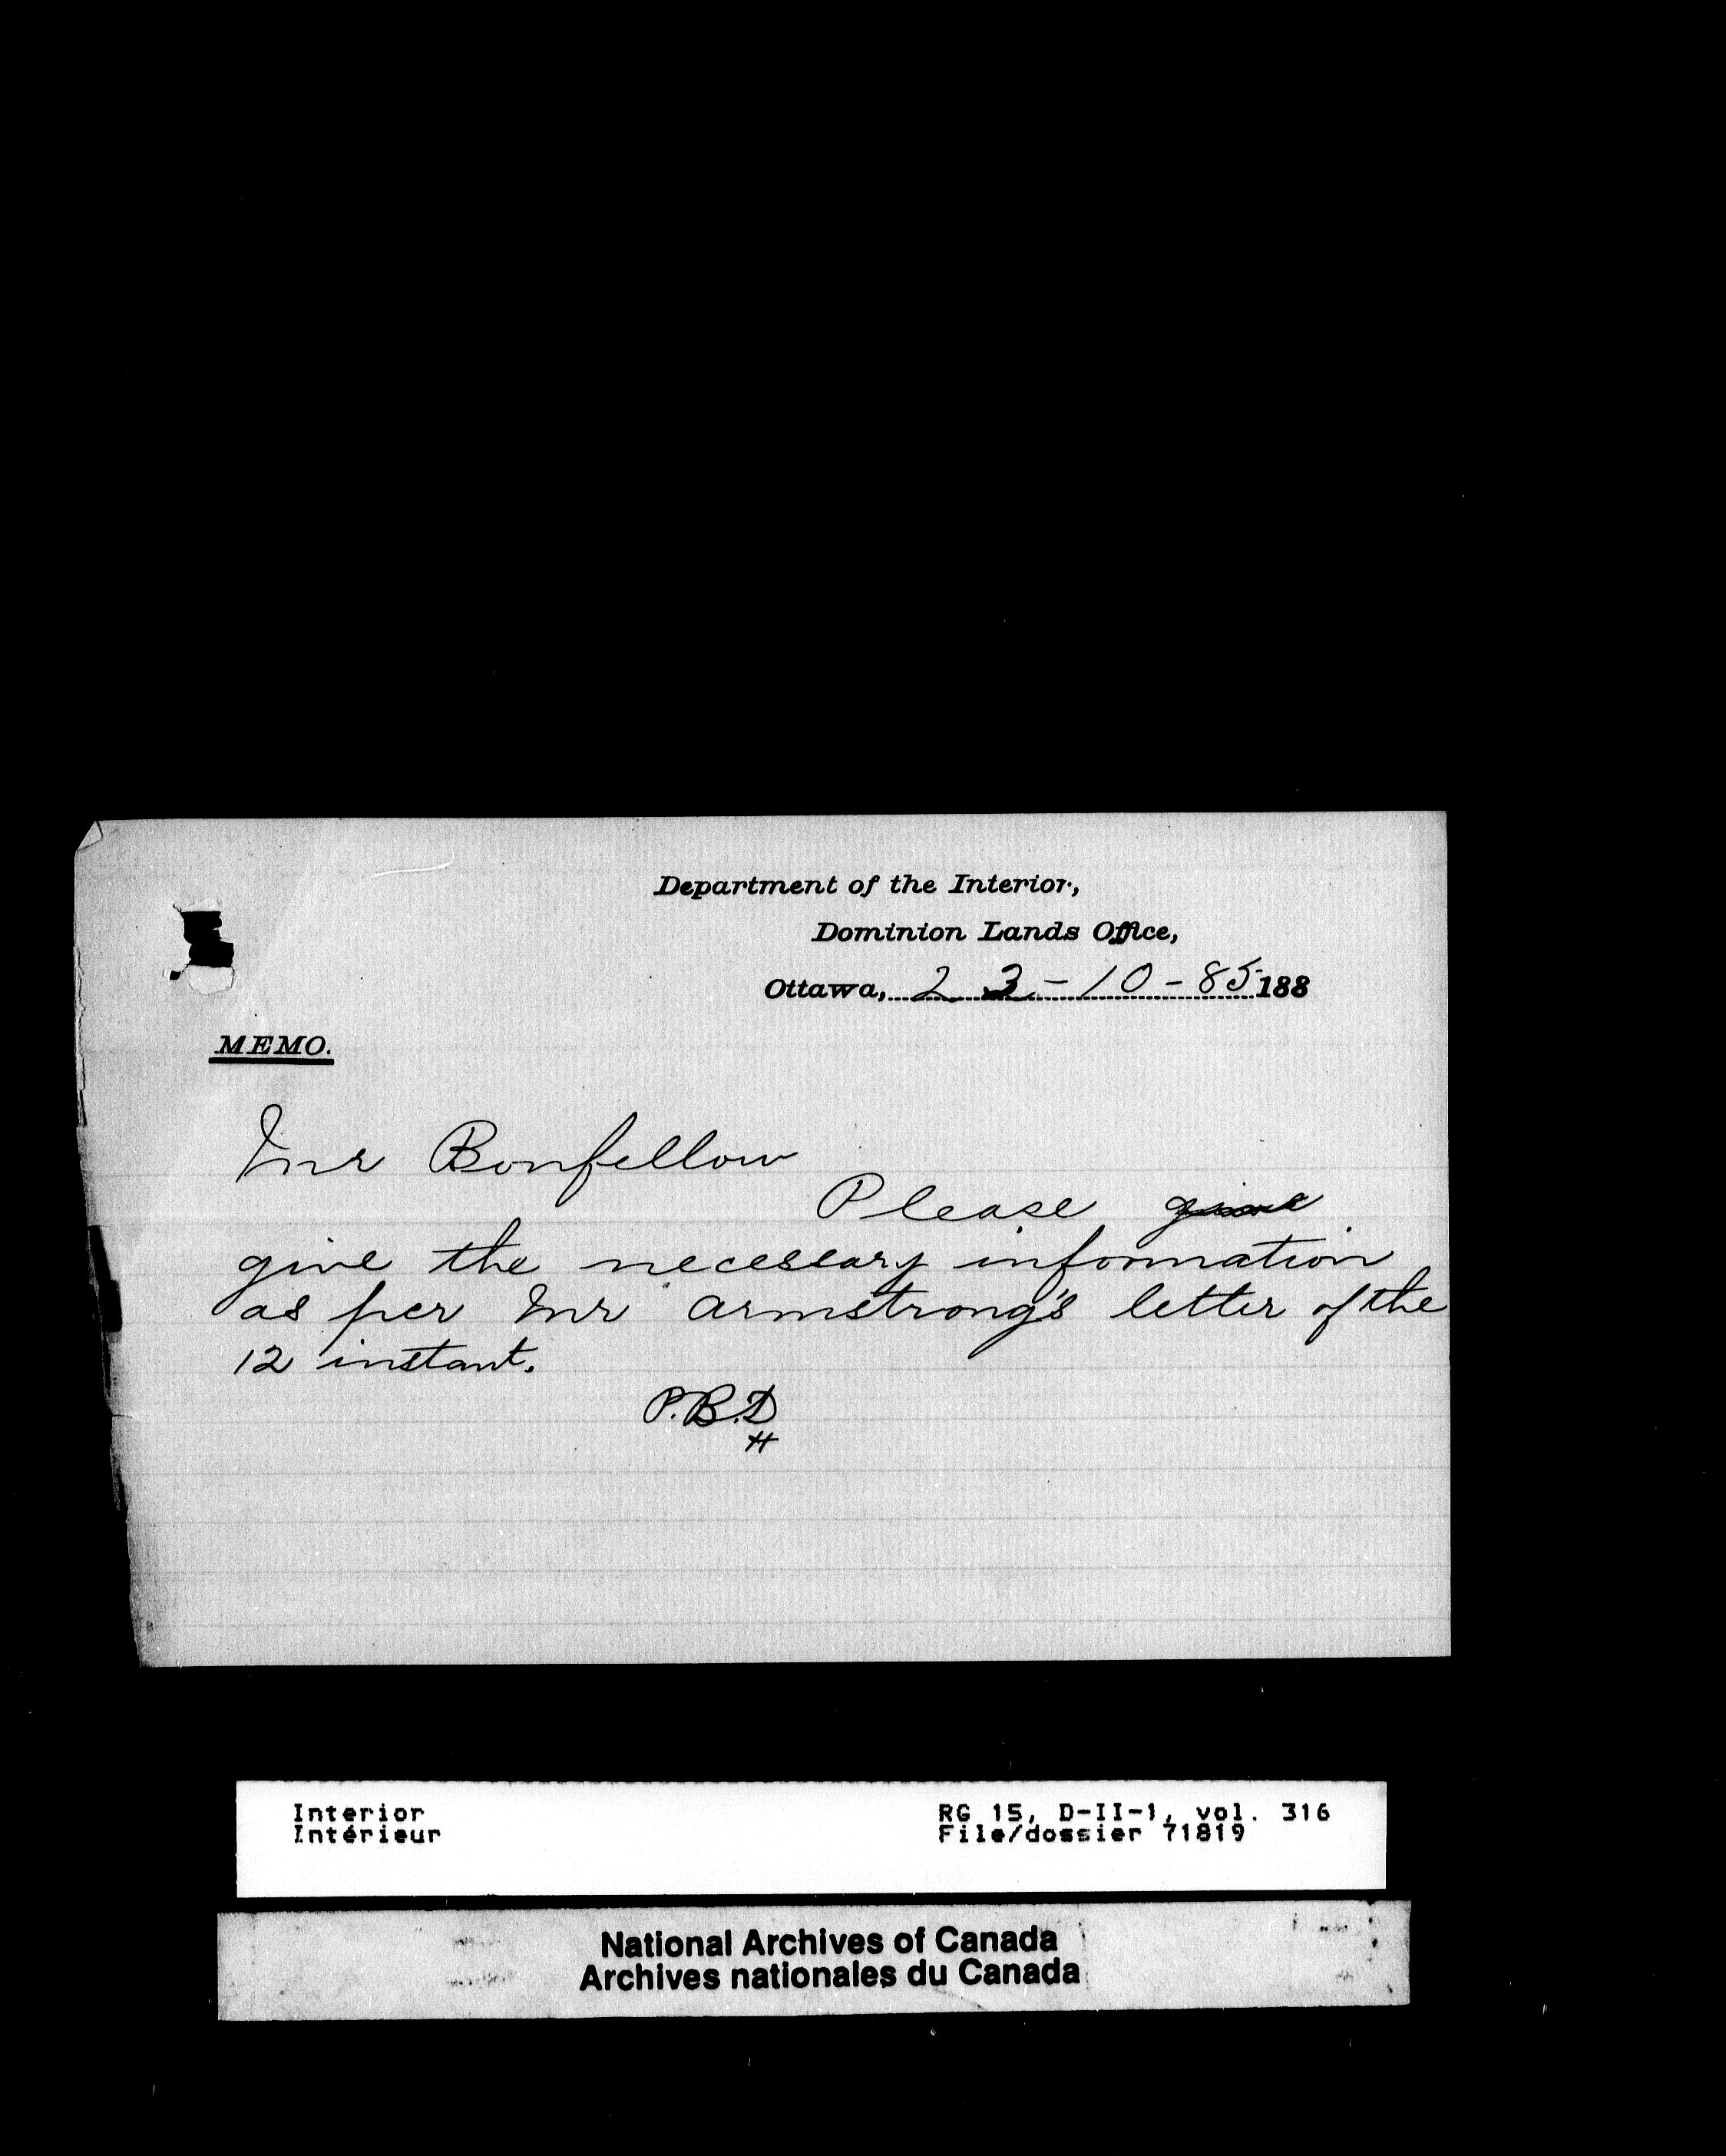 Department of the Interior,
Dominion Lands Office,
Ottawa, 23-10-85 188
MEMO.
Mr Bonfellow
Please give
give the necessary information
as per Mr Armstrong's letter of the
12 instant.
P.B.D
H
Interior
Intérieur
RG 15, D-II-1, vol. 316
File/dossier 71819
National Archives of Canada
Archives nationales du Canada